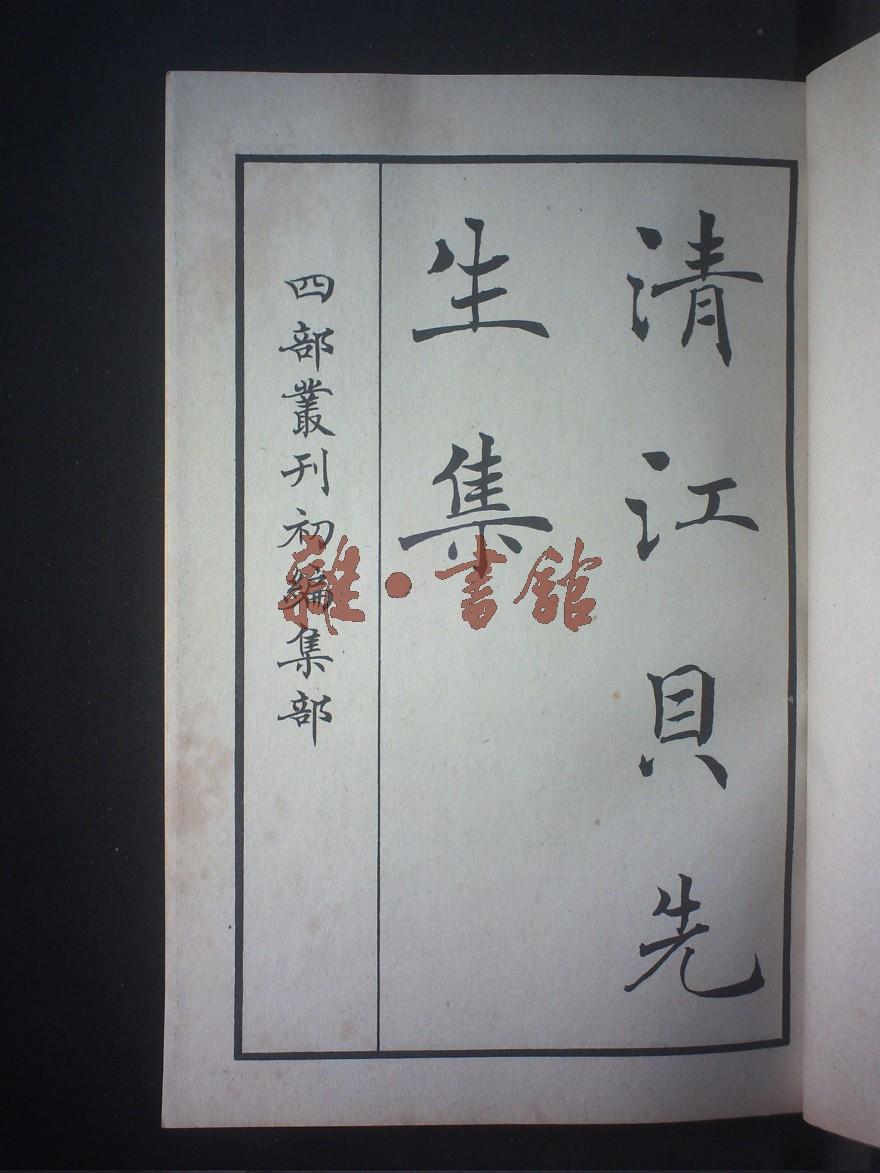 清江貝先
生集
四部叢刊初編集部
雜·書館